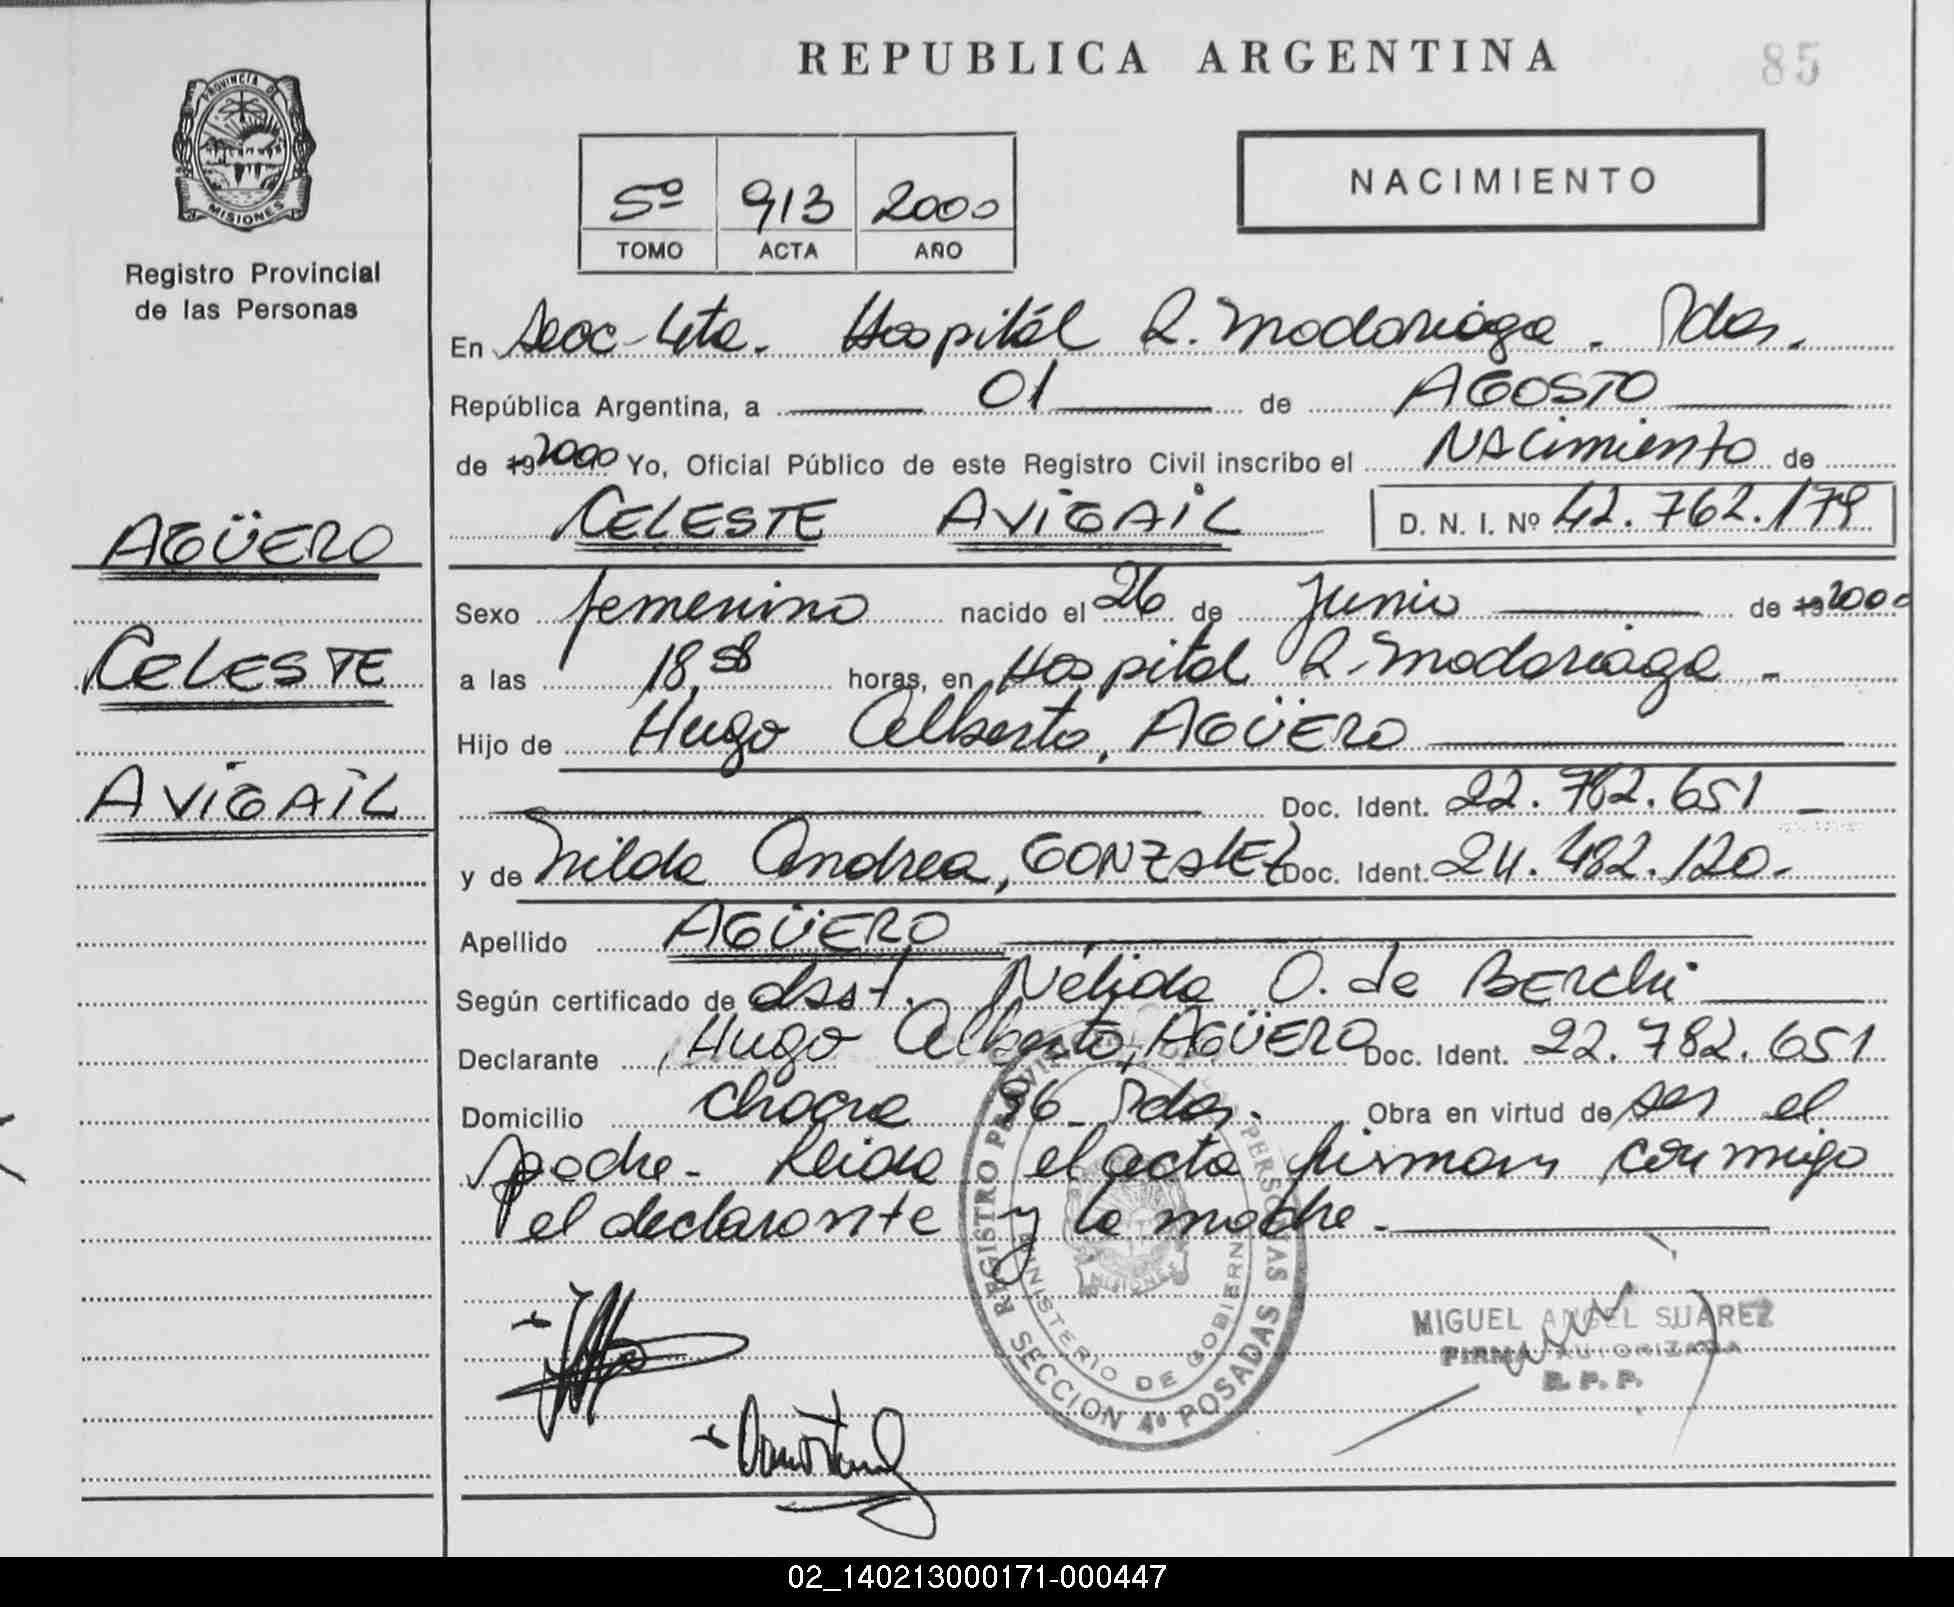 REPUBLICA ARGENTINA
85
PROVINCIA DE
MISIONES
Registro Provincial
de las Personas
5º 913 2000
TOMO ACTA AÑO
NACIMIENTO
En Secc 4ta. Hospitál R. Madariaga. Pdas.
República Argentina, a 01 de AGOSTO
de 19 2000 Yo, Oficial Público de este Registro Civil inscribo el NACimiento de
CELESTE AVIGAIL D. N. I. Nº 42.762.179
AGÜERO
CELESTE
AVIGAIL
Sexo femenino nacido el 26 de Junio de 19 2000
a las 18, horas, en Hospital R. Madariaga -
Hijo de Hugo Alberto, AGÜERO
Doc. Ident. 22.782.651 -
y de Nilda Andrea, GONZALEZ Doc. Ident. 24.482.120.-
Apellido AGÜERO
Según certificado de obst. Nélida O. de BERchi
Declarante Hugo Alberto, AGÜERO Doc. Ident. 22.782.651
Domicilio chacra 96 - Pdas. Obra en virtud de ser el
padre - leida el acta firman conmigo
el declarante y la madre.-
REGISTRO PROVINCIAL DE LAS PERSONAS
MINISTERIO DE GOBIERNO
MISIONES
SECCION 4ª POSADAS
MIGUEL ANGEL SUAREZ
FIRMA AUTORIZADA
R. P. P.
02_140213000171-000447